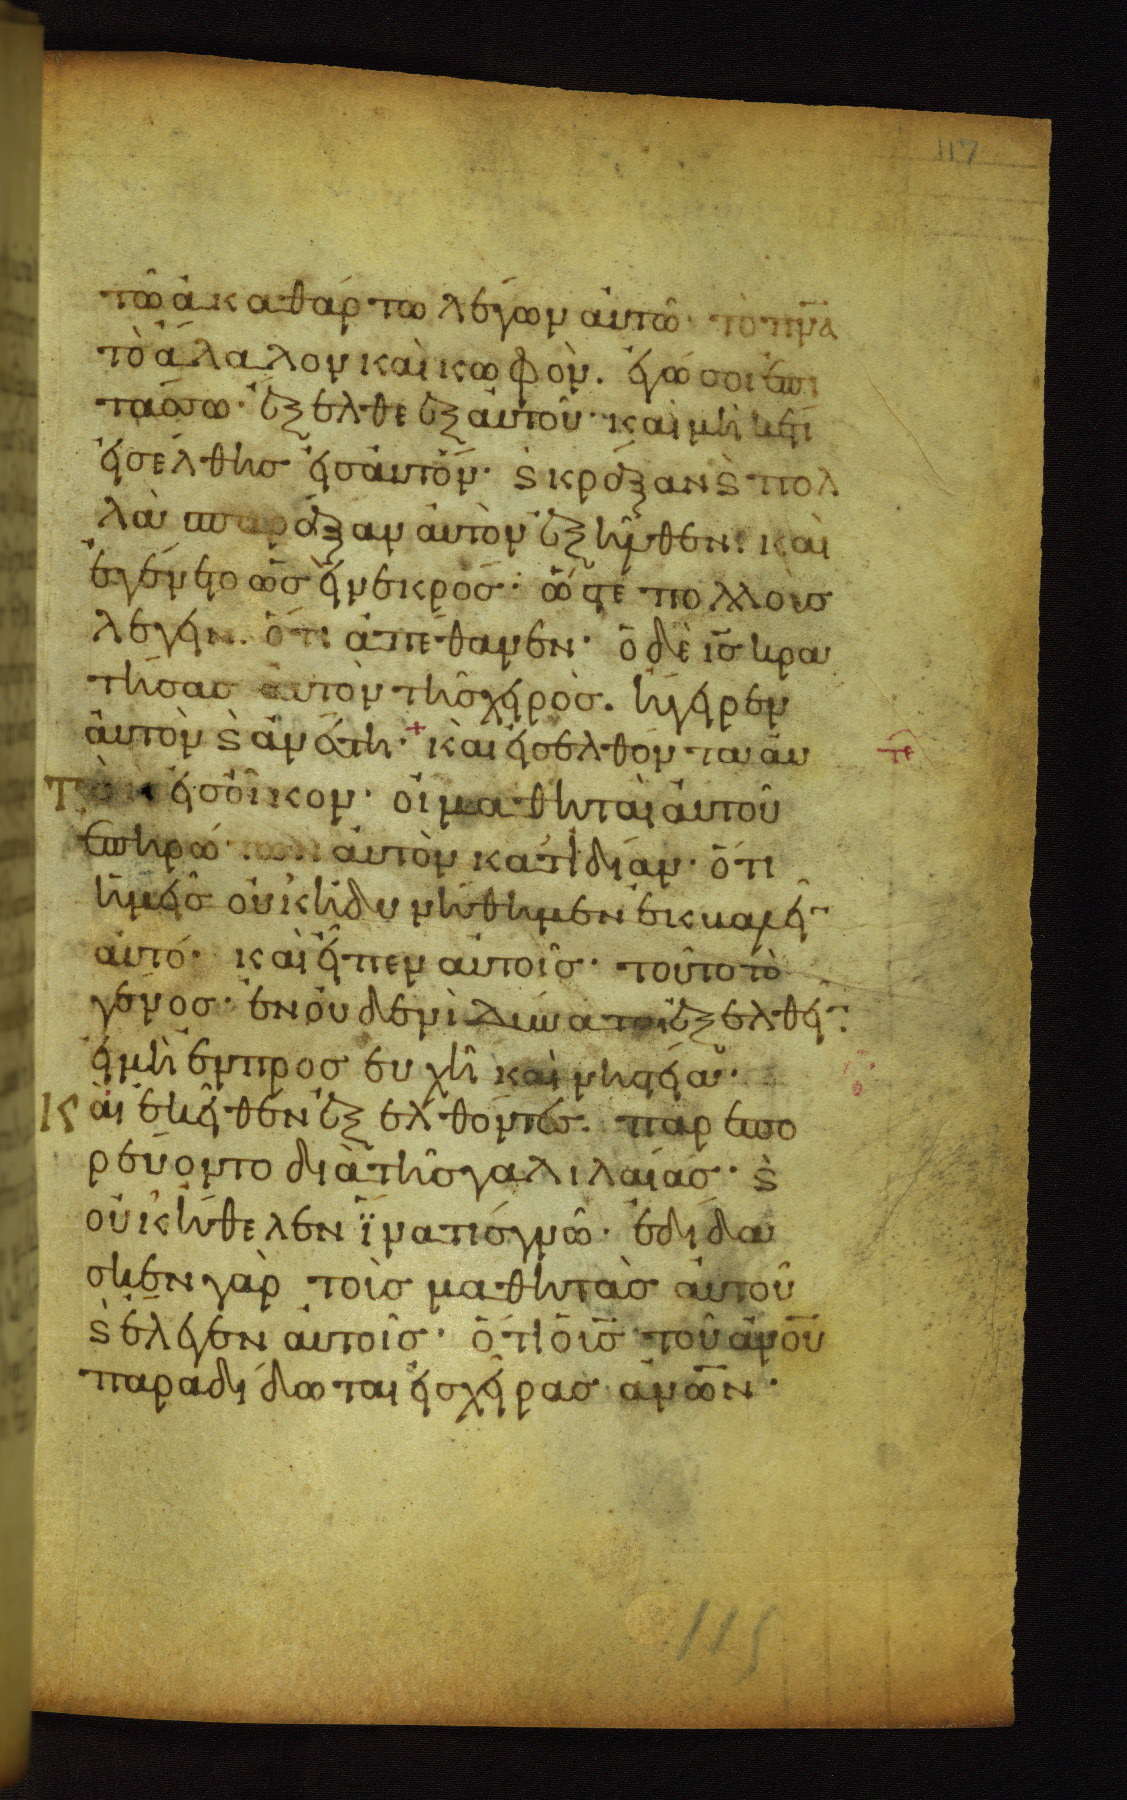 117
τῶ ἀκαθάρτω λέγων αὐτῶ· τὸ πν̅α
τὸ ἄλαλον καὶ κωφὸν. ἐγώ σοι ἐπι
τάσσω· ἔξελθε ἐξ αὐτοῦ· καὶ μὴ
εἰσέλθης εἰς αὐτόν· ϛ̀ κράξαν ϛ̀ πολ
λὰ σπαράξαν αὐτὸν ἐξῆλθεν· καὶ
ἐγένετο ὡς εἰ νεκρός· ὥστε πολλοὺς
λέγειν. ὅτι ἀπέθανεν· ὁ δὲ ις̅ κρα
τήσας αὐτὸν τῆς χειρὸς. ἤγειρεν
αὐτὸν ϛ̀ ἀνέστη· + καὶ εἰσελθόντα αὐ
τὸν εἰς οἶκον· οἱ μαθηταὶ αὐτοῦ
ἐπηρώτων αὐτὸν κατ' ἰδίαν· ὅτι
ἡμεῖς οὐκ ἠδυνήθημεν ἐκβαλεῖν
αὐτό· καὶ εἶπεν αὐτοῖς· τοῦτο τὸ
γένος· ἐν οὐδενὶ δύναται ἐξελθεῖν·
εἰ μὴ ἐν προσευχῆ καὶ νηστεία·
Καὶ ἐκεῖθεν ἐξελθόντες. παρεπο
ρεύοντο διὰ τῆς γαλιλαίας· ϛ̀
οὐκ ἤθελεν ἵνα τὶς γνῶ· ἐδίδα
σκεν γὰρ τοὺς μαθητὰς αὐτοῦ
ϛ̀ ἔλεγεν αὐτοῖς· ὅτι ὁ ις̅ τοῦ αν̅ου
παραδίδοται εἰς χεῖρας αν̅ων·
115